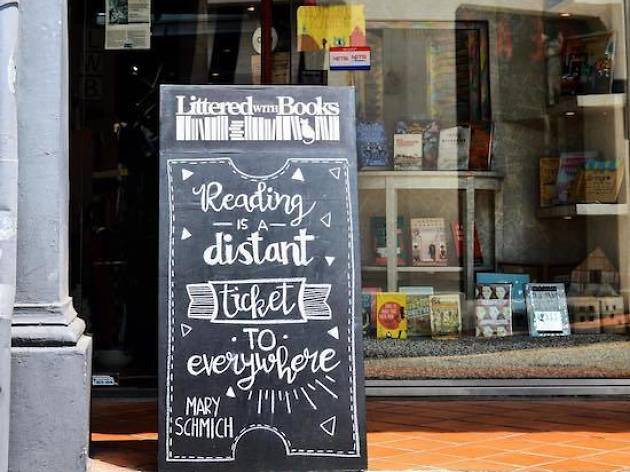 Littered WITH Books
Reading
IS A
distant
ticket
TO
everywhere
MARY
SCHMICH